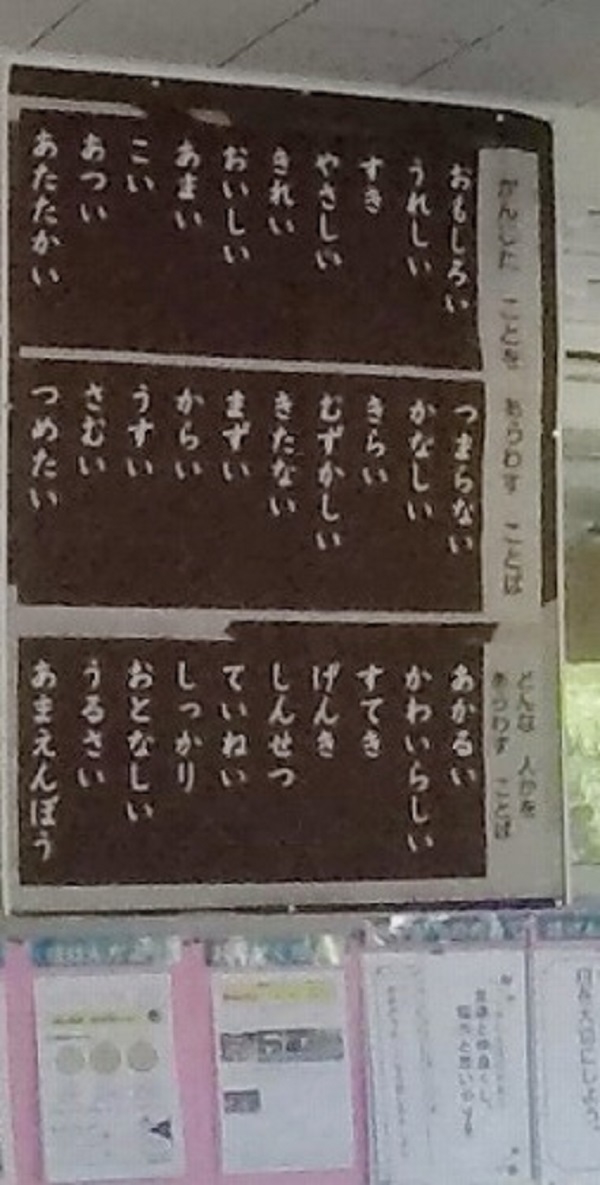 かんじた ことを あらわす ことば
おもしろい
うれしい
すき
やさしい
きれい
おいしい
あまい
こい
あつい
あたたかい
つまらない
かなしい
きらい
むずかしい
きたない
まずい
からい
うすい
さむい
つめたい
どんな 人かを
あらわす ことば
あかるい
かわいらしい
すてき
げんき
しんせつ
ていねい
しっかり
おとなしい
うるさい
あまえんぼう